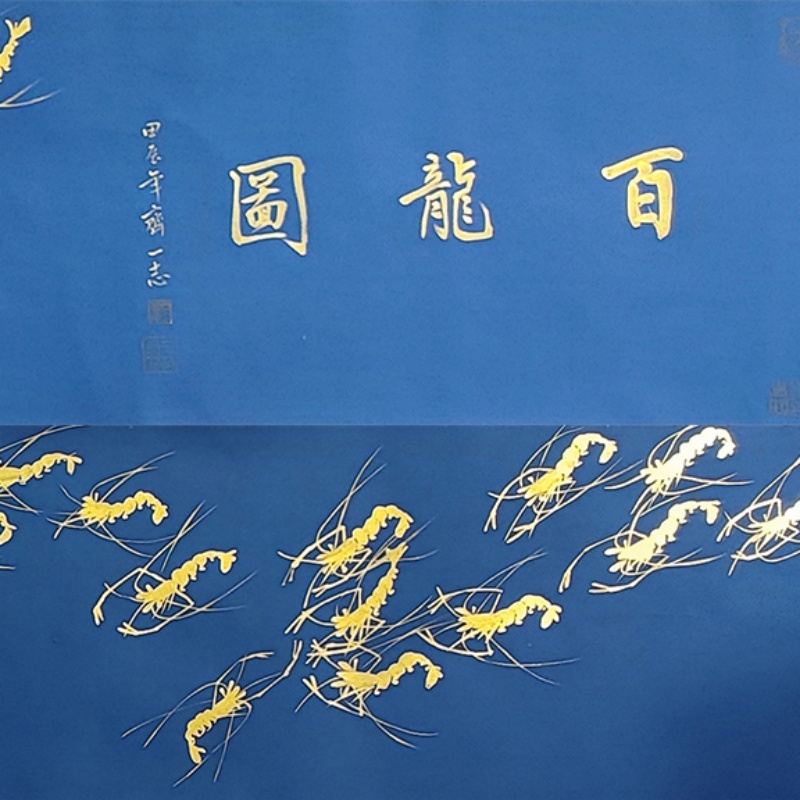 百龍圖
甲辰年齊一志